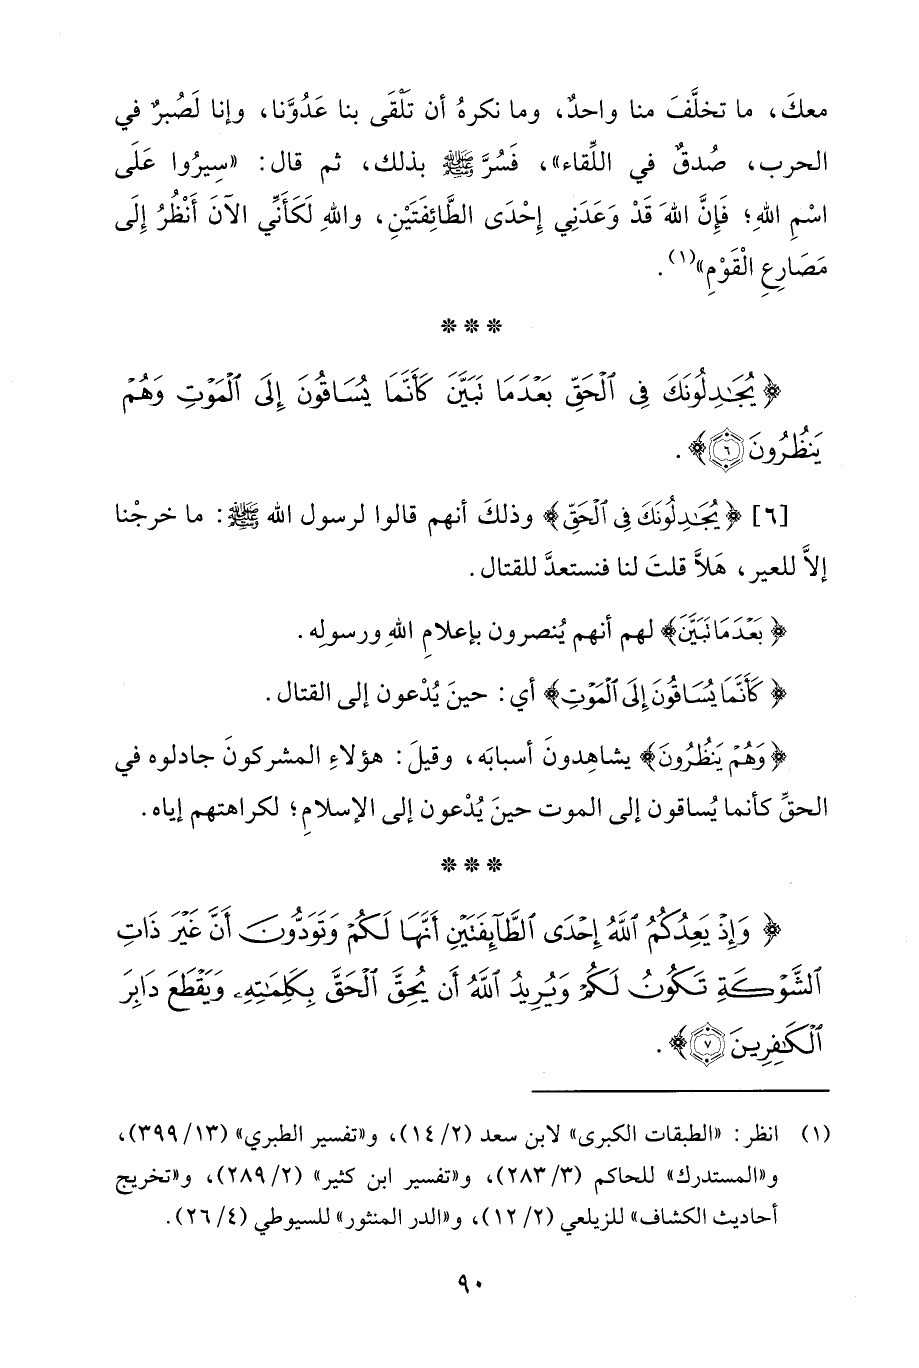 معكَ، ما تخلَّفَ منا واحدٌ، وما نكرهُ أن تَلْقَى بنا عَدُوَّنا، وإنا لَصُبرٌ في
الحرب، صُدقٌ في اللِّقاء»، فَسُرَّ ﷺ بذلك، ثم قال: «سِيرُوا عَلَى
اسْمِ اللهِ؛ فَإِنَّ اللهَ قَدْ وَعَدَنِي إِحْدَى الطَّائِفَتَيْنِ، واللهِ لَكَأَنِّي الآنَ أَنْظُرُ إِلَى
مَصَارِعِ الْقَوْمِ»(١).
* * *
﴿ يُجَٰدِلُونَكَ فِي ٱلْحَقِّ بَعْدَمَا تَبَيَّنَ كَأَنَّمَا يُسَاقُونَ إِلَى ٱلْمَوْتِ وَهُمْ
يَنظُرُونَ ٦ ﴾.
[٦] ﴿ يُجَٰدِلُونَكَ فِي ٱلْحَقِّ ﴾ وذلكَ أنهم قالوا لرسول الله ﷺ: ما خرجْنا
إلاَّ للعير، هَلاَّ قلتَ لنا فنستعدَّ للقتال.
﴿ بَعْدَمَا تَبَيَّنَ ﴾ لهم أنهم يُنصرون بإعلامِ اللهِ ورسولِه.
﴿ كَأَنَّمَا يُسَاقُونَ إِلَى ٱلْمَوْتِ ﴾ أي: حينَ يُدْعون إلى القتال.
﴿ وَهُمْ يَنظُرُونَ ﴾ يشاهِدونَ أسبابَه، وقيلَ: هؤلاءِ المشركونَ جادلوه في
الحقِّ كأنما يُساقون إلى الموت حينَ يُدْعون إلى الإسلامِ؛ لكراهتهم إياه.
* * *
﴿ وَإِذْ يَعِدُكُمُ ٱللَّهُ إِحْدَى ٱلطَّآئِفَتَيْنِ أَنَّهَا لَكُمْ وَتَوَدُّونَ أَنَّ غَيْرَ ذَاتِ
ٱلشَّوْكَةِ تَكُونُ لَكُمْ وَيُرِيدُ ٱللَّهُ أَن يُحِقَّ ٱلْحَقَّ بِكَلِمَٰتِهِۦ وَيَقْطَعَ دَابِرَ
ٱلْكَٰفِرِينَ ٧ ﴾.
(١) انظر: «الطبقات الكبرى» لابن سعد (٢/ ١٤)، و«تفسير الطبري» (١٣/ ٣٩٩)،
و«المستدرك» للحاكم (٣/ ٢٨٣)، و«تفسير ابن كثير» (٢/ ٢٨٩)، و«تخريج
أحاديث الكشاف» للزيلعي (٢/ ١٢)، و«الدر المنثور» للسيوطي (٤/ ٢٦).
٩٠